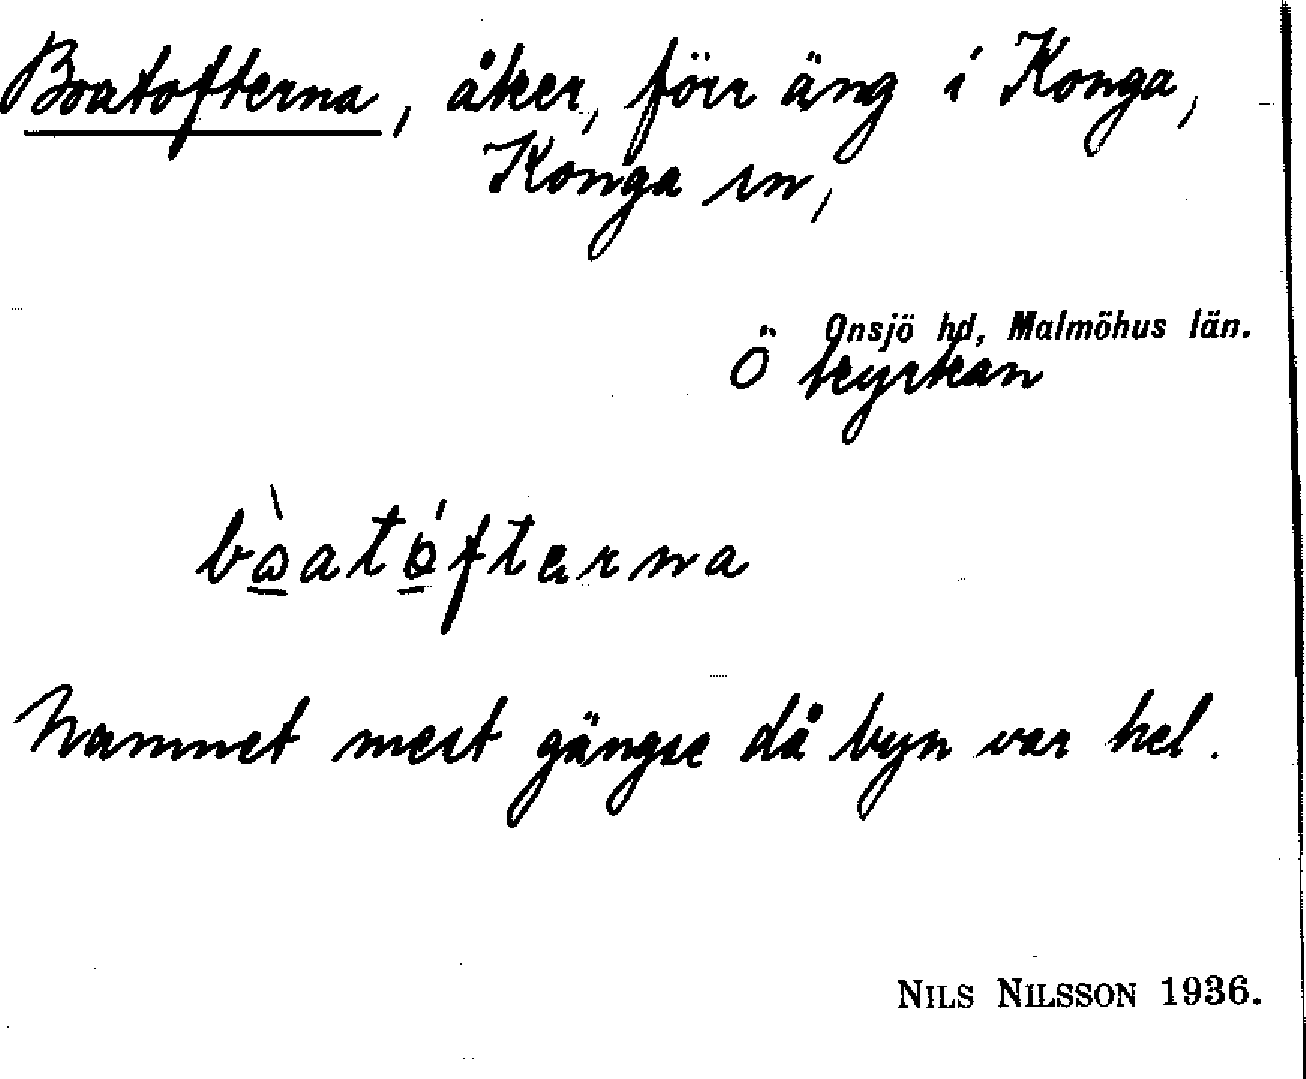 Boatofterna, åker, förr äng i Konga,
Konga sn,
Onsjö hd, Malmöhus län.
Ö kyrkan
bòatóftərna
Namnet mest gängse då byn var hel.
NILS NILSSON 1936.